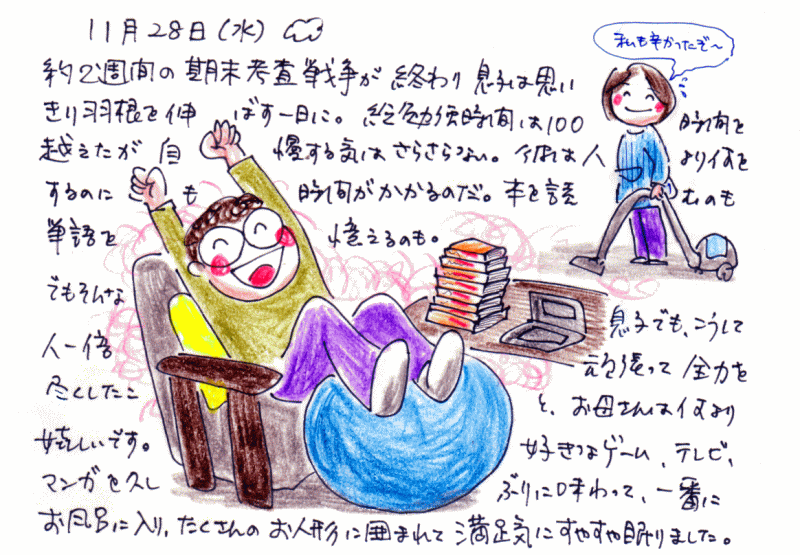 11月28日(水)
私も辛かったぞ〜
約2週間の期末考査戦争が終わり息子は思い
きり羽根を伸ばす一日に。総勉強時間は100時間を
越えたが自慢する気はさらさらない。彼は人より何を
するのにも時間がかかるのだ。本を読むのも
単語を憶えるのも。
でもそんな息子でも、こうして
人一倍頑張って全力を
尽くしたこと、お母さんは何より
嬉しいです。好きなゲーム、テレビ、
マンガを久しぶりに味わって、一番に
お風呂に入り、たくさんのお人形に囲まれて満足気にすやすや眠りました。